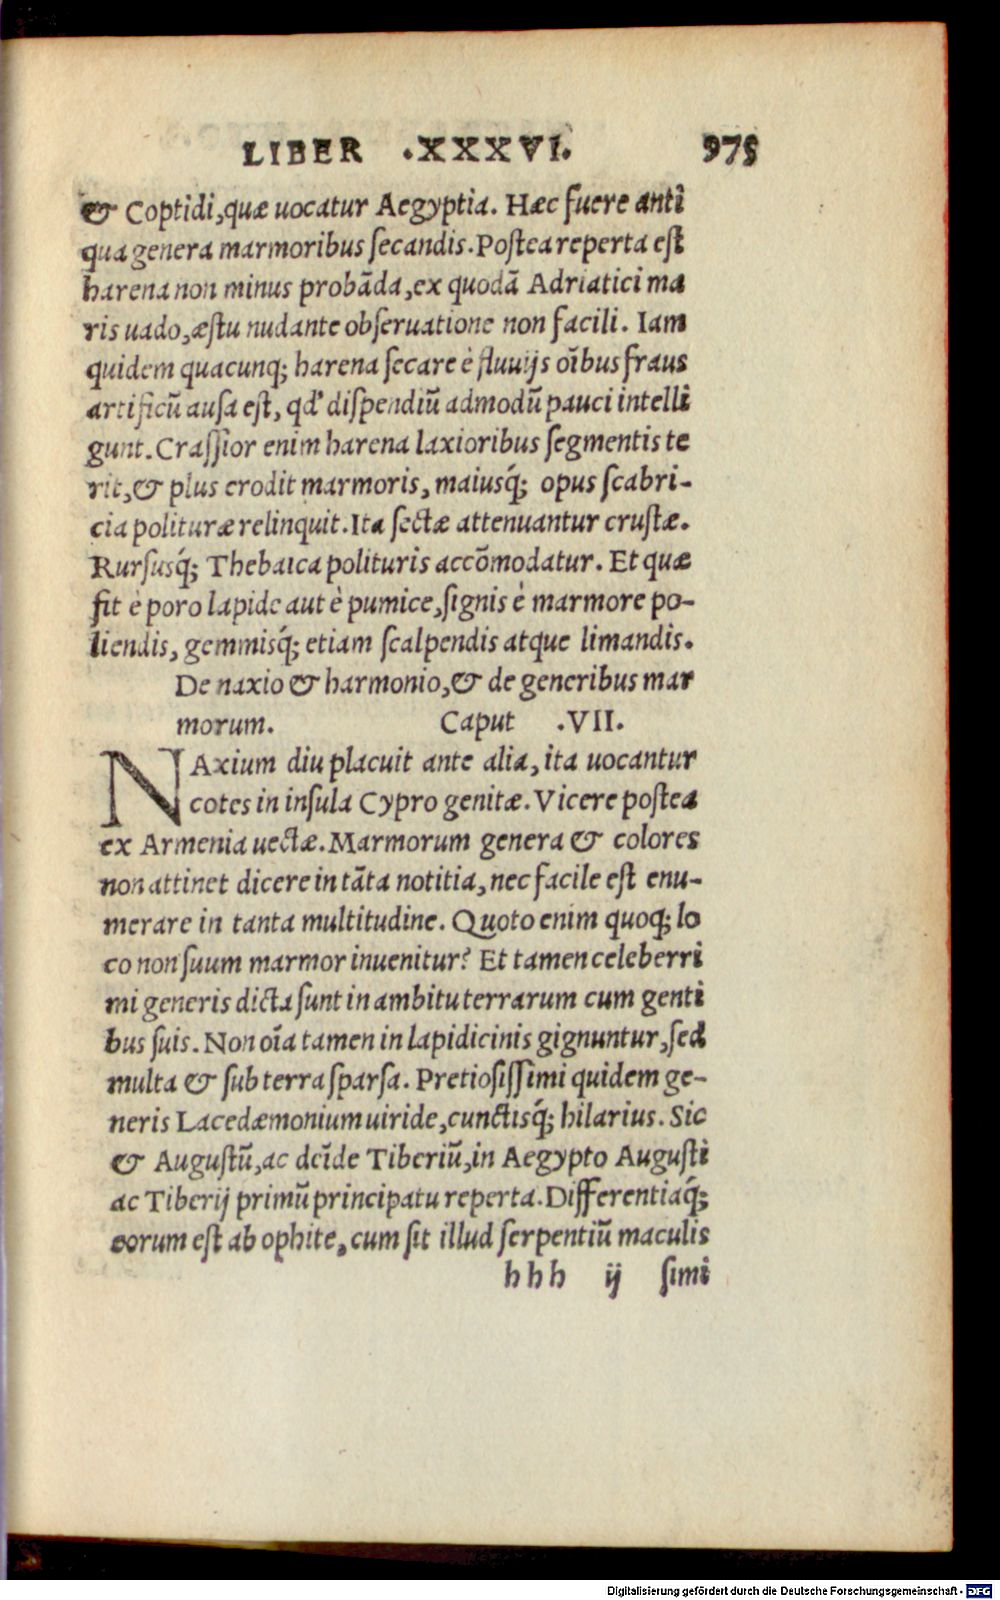 LIBER .XXXVI. 975
& Coptidi,quæ uocatur Aegyptia. Hæc fuere anti
qua genera marmoribus secandis.Postea reperta est
harena non minus probāda,ex quodā Adriatici ma
ris uado,æstu nudante obseruatione non facili. Iam
quidem quacunq; harena secare è fluuijs oībus fraus
artificū ausa est, qd' dispendiū admodū pauci intelli
gunt.Crassior enim harena laxioribus segmentis te
rit,& plus erodit marmoris, maiusq́; opus scabri-
cia polituræ relinquit.Ita sectæ attenuantur crustæ.
Rursusq́; Thebaica polituris accōmodatur. Et quæ
fit è poro lapide aut è pumice,signis è marmore po-
liendis, gemmisq́; etiam scalpendis atque limandis.
De naxio & harmonio,& de generibus mar
morum. Caput .VII.
NAxium diu placuit ante alia, ita uocantur
cotes in insula Cypro genitæ. Vicere postea
ex Armenia uectæ.Marmorum genera & colores
non attinet dicere in tāta notitia, nec facile est enu-
merare in tanta multitudine. Quoto enim quoq; lo
co non suum marmor inuenitur? Et tamen celeberri
mi generis dicta sunt in ambitu terrarum cum genti
bus suis. Non oīa tamen in lapidicinis gignuntur,sed
multa & sub terra sparsa. Pretiosissimi quidem ge-
neris Lacedæmonium uiride,cunctisq́; hilarius. Sic
& Augustū,ac deīde Tiberiū,in Aegypto Augusti
ac Tiberij primū principatu reperta.Differentiaq́;
eorum est ab ophite, cum sit illud serpentiū maculis
hhh ij simi
Digitalisierung gefördert durch die Deutsche Forschungsgemeinschaft - DFG